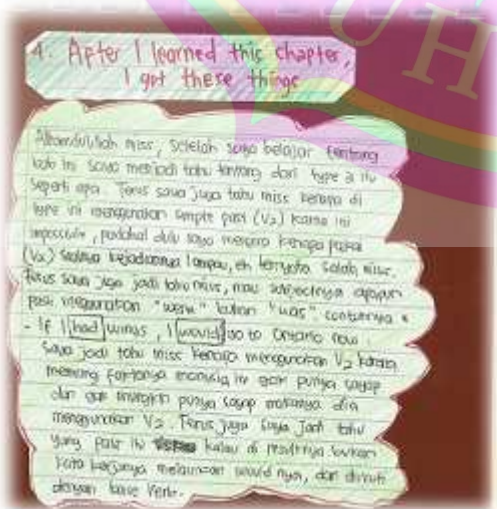 4. After I learned this chapter,
I got these things
Alhamdulillah miss, setelah saya belajar tentang
bab ini saya menjadi tahu tentang dari type 2 itu
seperti apa. Terus saya juga tahu miss kenapa di
type ini menggunakan simple past (V2) karna ini
impossible, padahal dulu saya mengira kenapa pakai
(V2) kejadiannya lampau, eh ternyata salah miss.
Terus saya juga jadi tahu miss, mau subjectnya apapun
pasti menggunakan "were" bukan "was" contohnya
- If I had wings, I would go to Ontario now.
Saya jadi tahu miss kenapa menggunakan V2 karna
memang faktanya manusia itu gak punya sayap
dan gak mungkin punya sayap makanya dia
menggunakan V2. Terus juga saya jadi tahu
yang past itu kalau di resultnya bukan
kata kerjanya melainkan would nya, dan diikuti
dengan base verb.
UH